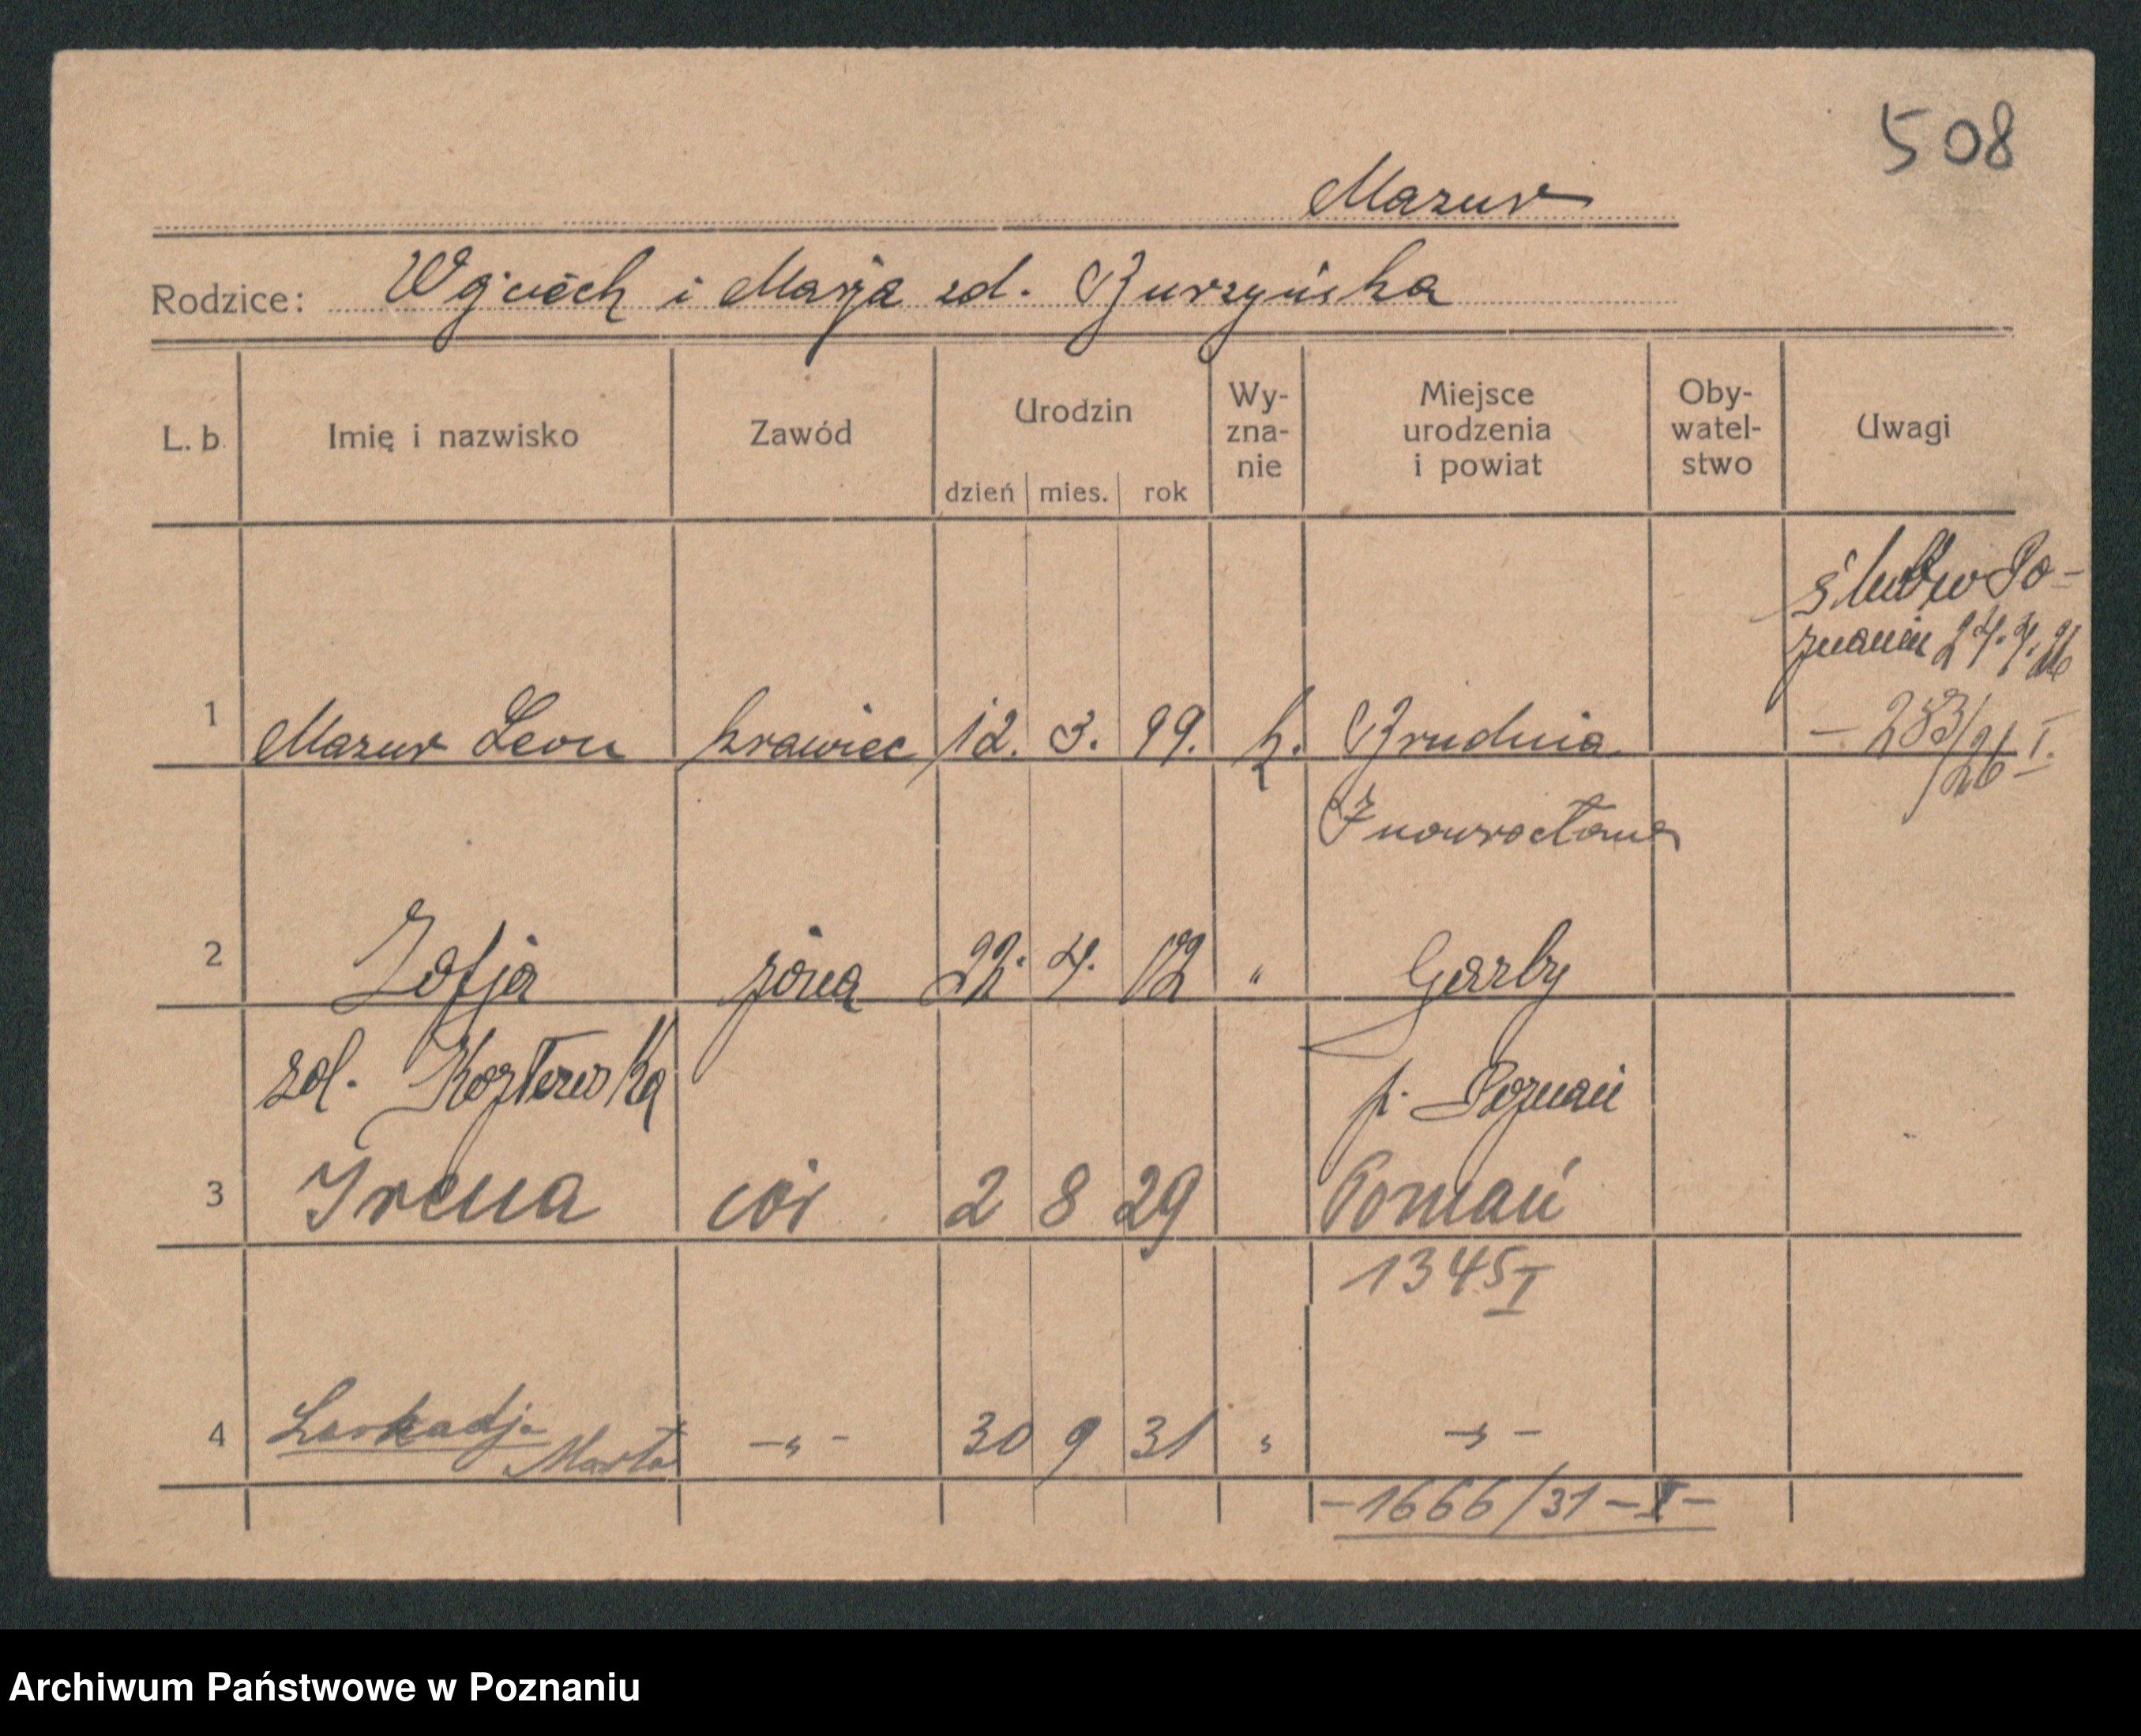 508
Mazur
Rodzice: Wojciech i Marja zd. Burzyńska
L. b. Imię i nazwisko Zawód Urodzin dzień mies. rok Wy-zna-nie Miejsce urodzenia i powiat Oby-watel-stwo Uwagi
ślub w Po-
znaniu 24.7.26
1 Mazur Leon krawiec 12. 3. 99. k. Brudnia – 283/26 I.
Inowrocław
2 Zofja żona 22. 4. 02 " Garby
zd. Kozłowska p. Poznań
3 Irena cór 2 8 29 Poznań
1345 I
4 Leokadja Marta –"– 30 9 31 " –"–
–1666/31–I–
Archiwum Państwowe w Poznaniu